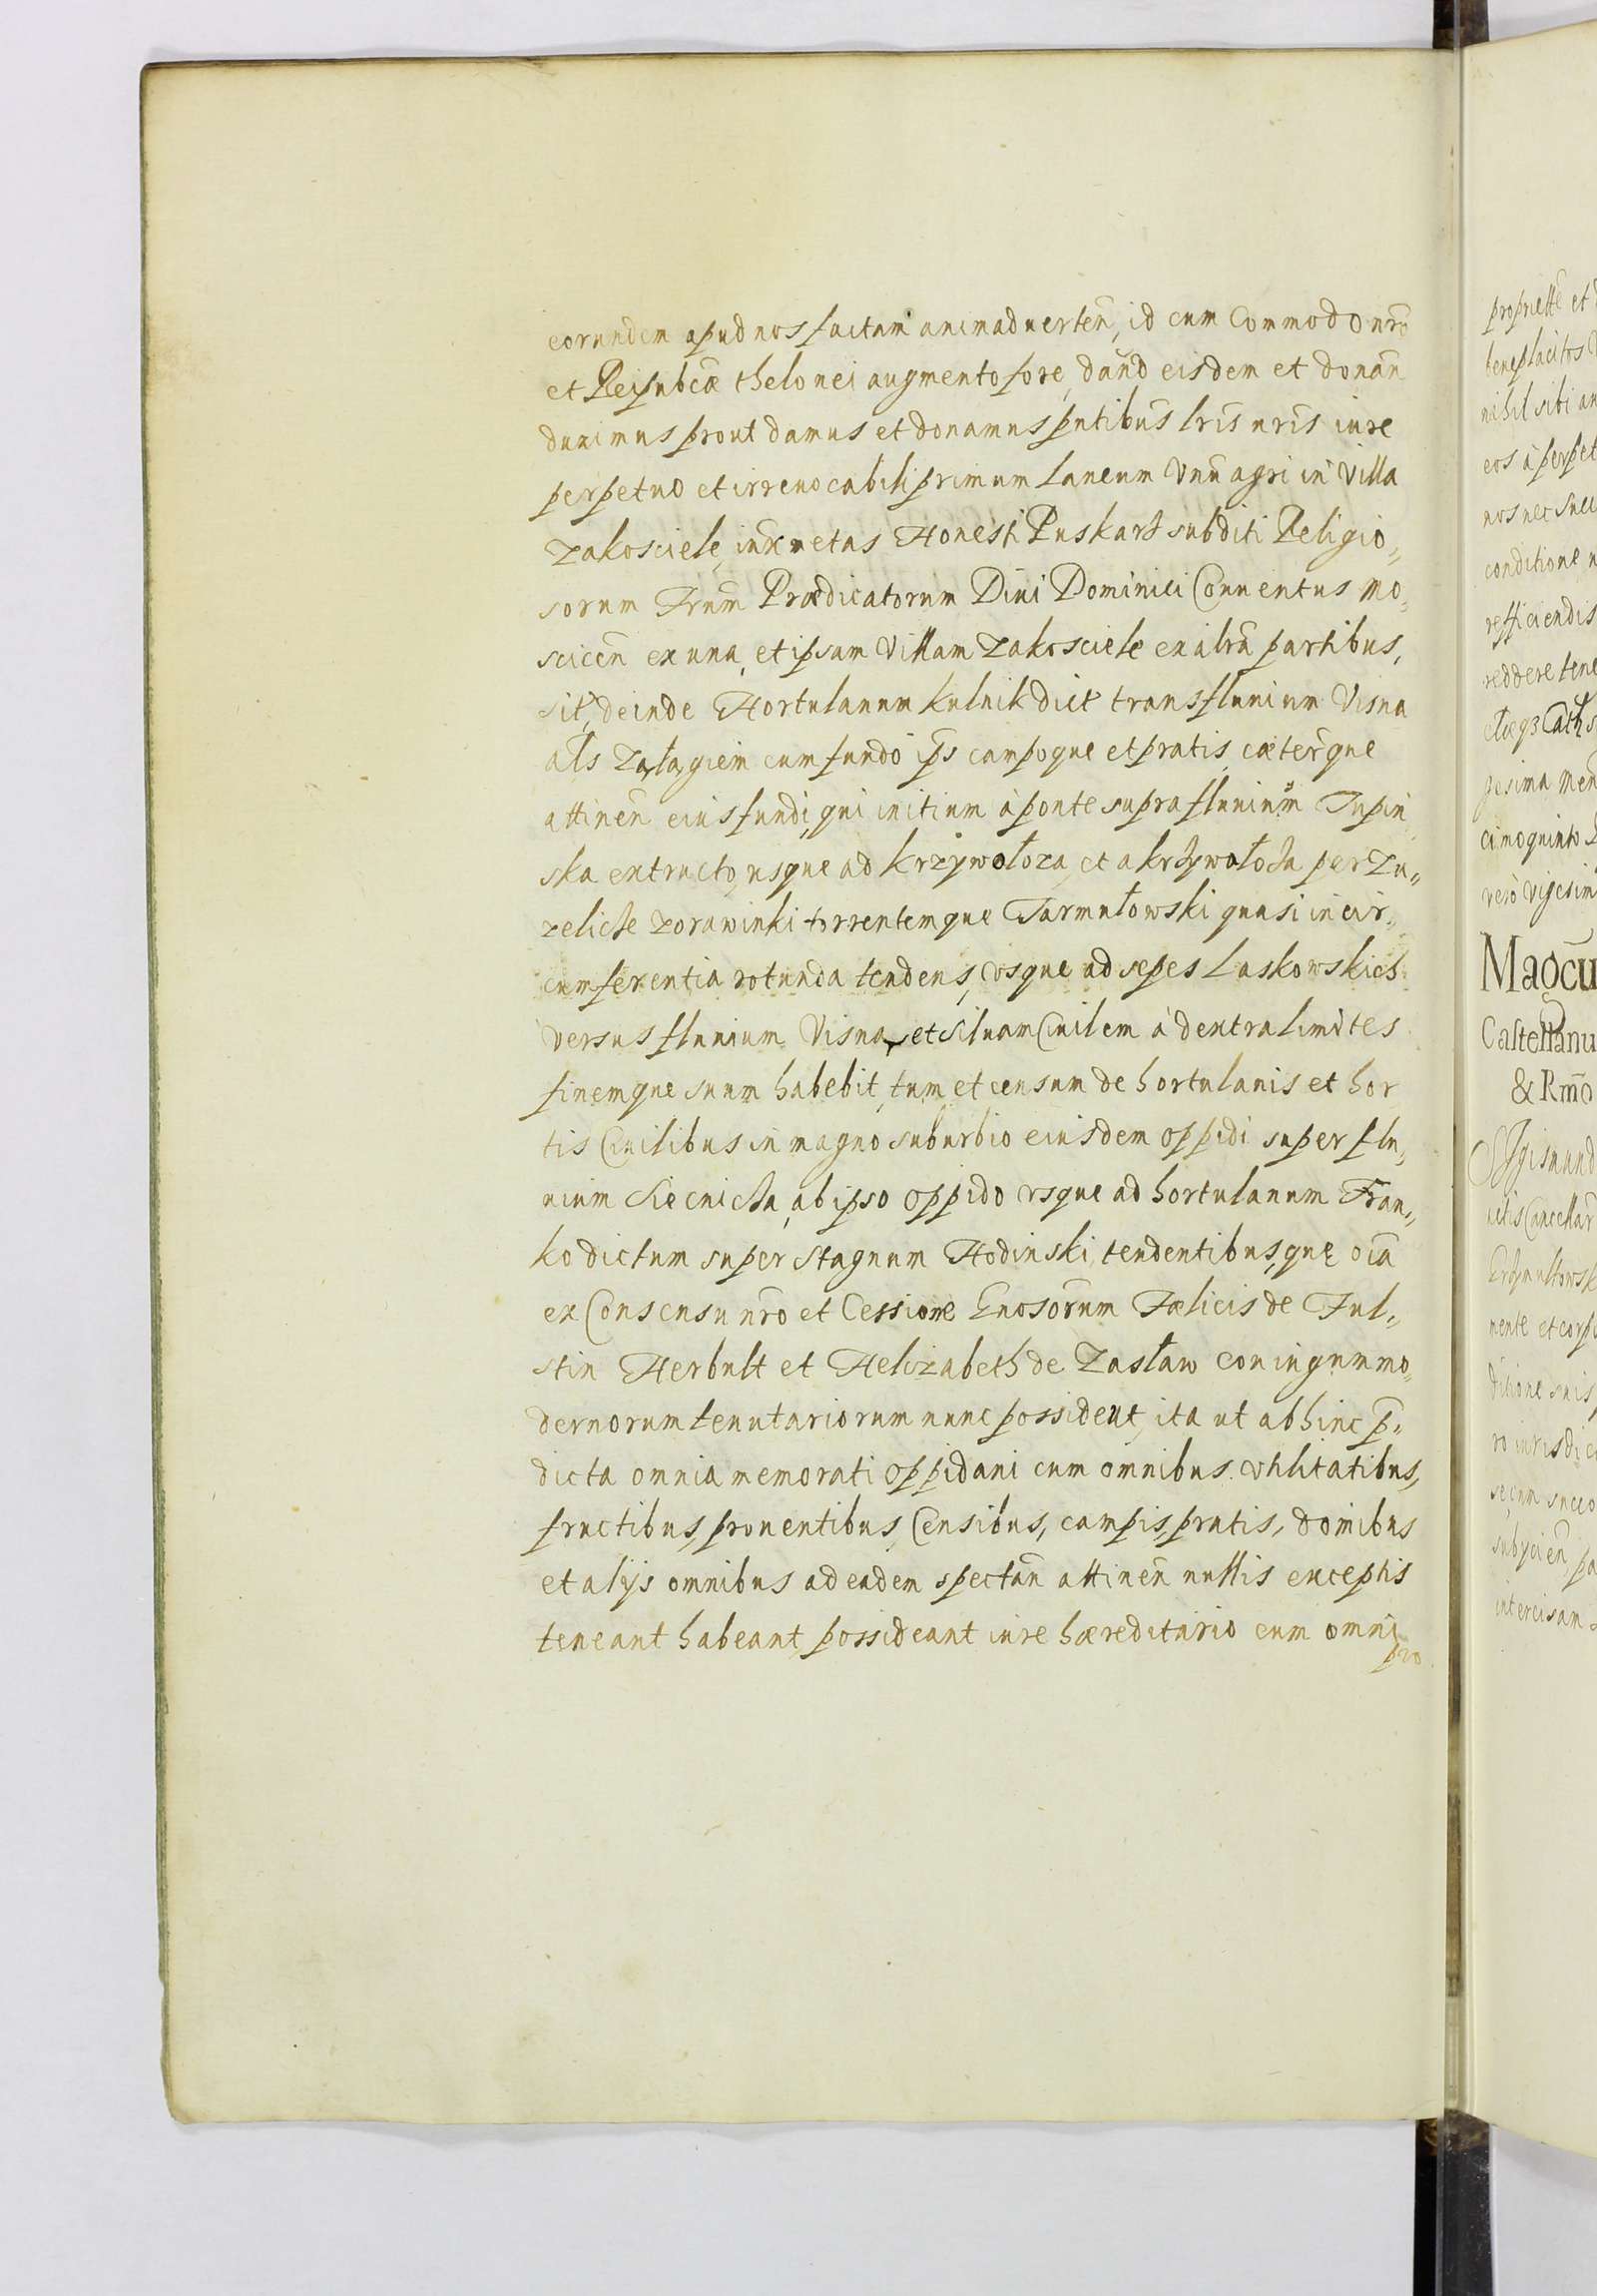 eorundem apud nos factam animaduerten̄, id cum Commodo nr̄o
et Reipubcæ thelonei augmento fore, dan̄d eisdem et donan̄
duximus prout damus et donamus pn̄tibus lr̄is nr̄is iure
perpetuo et irreuocabili primum Laneum Vnū agri in Villa
Zakosciele, inter metas Honesti Puskarz subditi Religio„
sorum Frūm Prædicatorum Diui Dominici Conuentus Mo„
scicen̄ ex una, et ipsam Villam Zakosciele ex altrā partibus,
sit, deinde Hortulanum Kulnik dict trans fluuium Visna
als Za, cum fundo ip̄s campoque et pratis, cæterq̄ue
attinen̄ eius fundi, qui initium à ponte supra fluuium Tupin
ska extructo, usque ad Krzywołoza, et a krzywołoza per Zu„
zelicze zorawinki torrentemque Jarmułowski quasi in cir„
cumferentia rotunda tendens, vsque ad sepes Laskowskich
versus fluuium Visna, et Siluam Ciuilem à dextra limites
finemque suum habebit, tum et censum de hortulanis et hor
tis Ciuilibus in magno suburbio eiusdem oppidi super flu„
uium Siecnicza, ab ipso oppido vsque ad hortulanum Fran„
ko dictum super Stagnum Hodinski, tendentibus, quę oīa
ex Consensu nr̄o et Cessione Gnosorum Fælicis de Ful„
stin Herbult et Helizabeth de Zasław coniugum mo„
dernorum tenutariorum nunc possident, ita ut abhinc p̄„
dicta omnia memorati oppidani cum omnibus vtilitatibus,
fructibus, prouentibus, Censibus, campis, pratis, domibus
et alijs omnibus ad eadem spectan̄ attinen̄ nullis exceptis
teneant habeant, possideant iure hæreditario cum omni
pro
propriette et
beneplacitos
nihil sibi
eos à perpet
nos nec succ
conditione
reficiendis
reddere tene
gesima
cimoquinto
vero vigesim
Magcu
Castellanu
& Rm̄o
Sigismund
Cancellar
mente et corp
ditione suis
ro iurisdi
subycien̄
intercisam